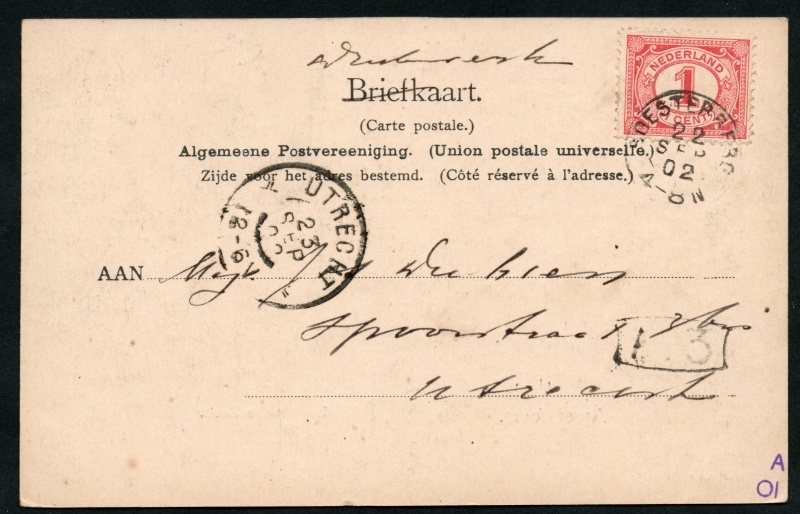 Drukwerk
Briefkaart.
(Carte postale.)
Algemeene Postvereeniging. (Union postale universelle.)
Zijde voor het adres bestemd. (Côté réservé à l'adresse.)
NEDERLAND
1
CENT
SOESTERBERG
22
SEP
02
4-8N
UTRECHT
23
SEP
12-6V
AAN Mej.
Spoorstraat 3 bis
Utrecht
3
A
01